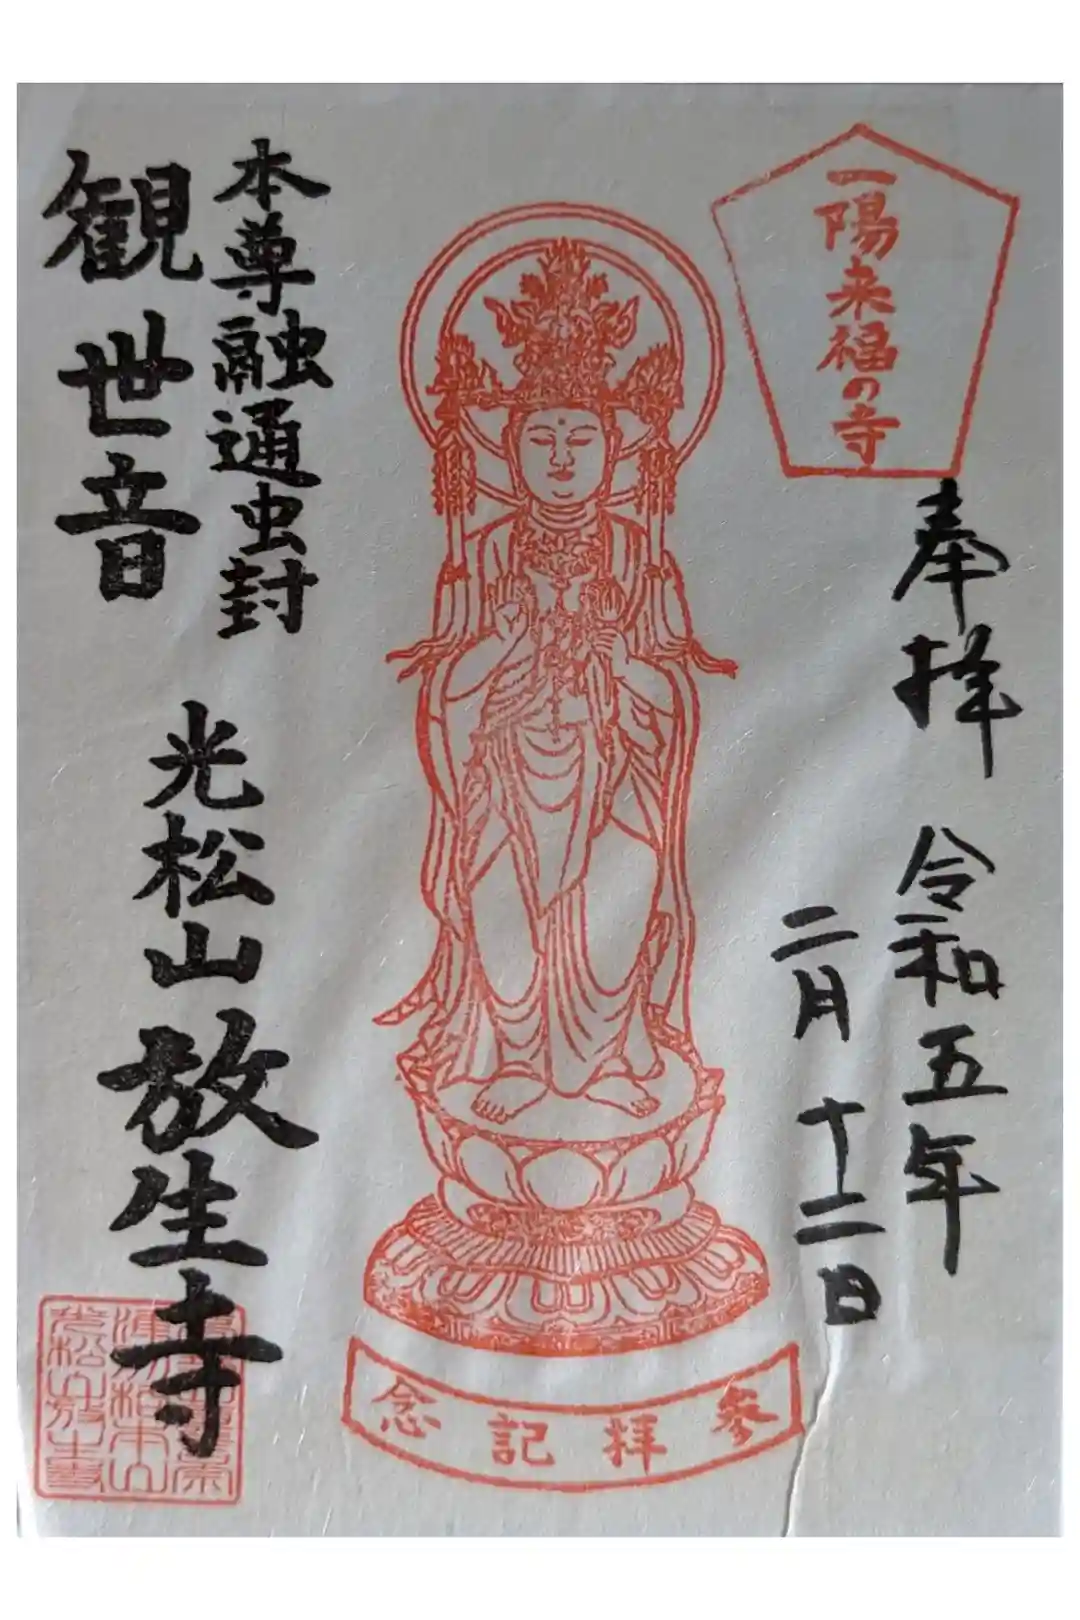 一陽来福の寺
奉拝 令和五年
二月 十二日
参拝記念
本尊融通虫封
観世音
光松山 放生寺